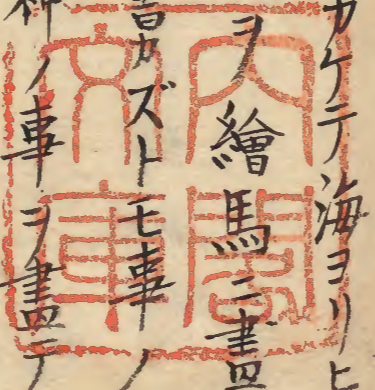 カケテ海ヨリ
ヲ繪馬ニ畫
書カズトモ事ノ
神ノ事ヲ畫テ
内閣
文庫